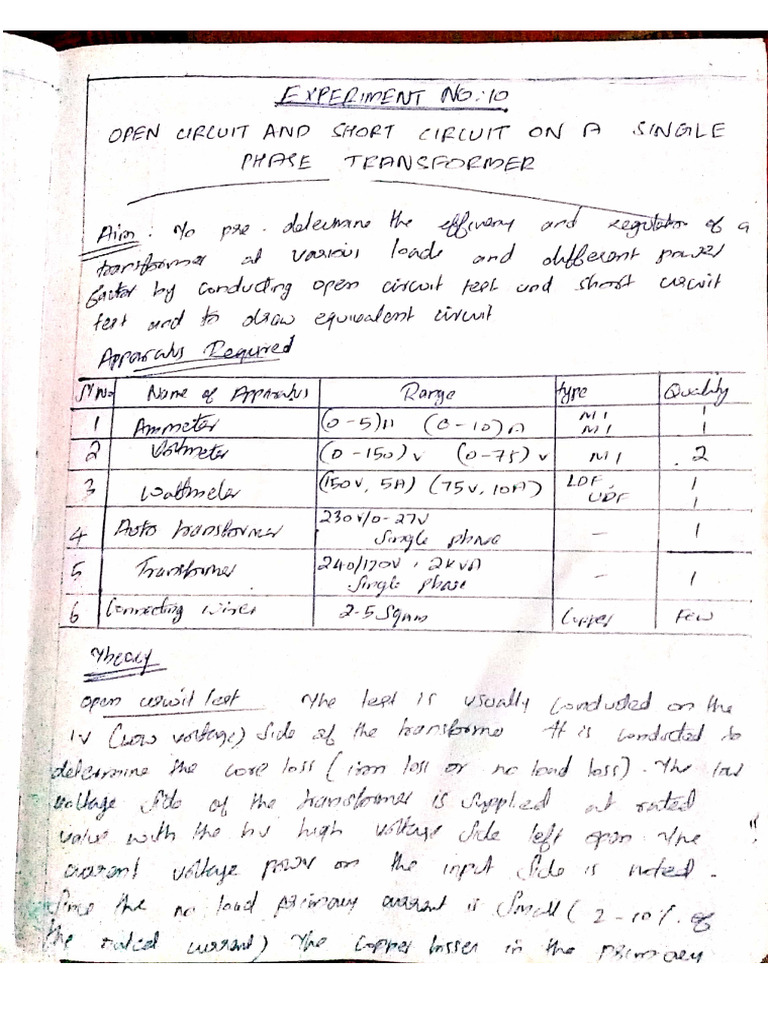 EXPERIMENT NO:10
OPEN CIRCUIT AND SHORT CIRCUIT ON A SINGLE
PHASE TRANSFORMER
Aim: To pre-determine the efficiency and regulation of a
transformer at various loads and different power
factor by conducting open circuit test and short circuit
test and to draw equivalent circuit
Apparatus Required
Sl No. Name of Apparatus Range type Quality
1 Ammeter (0-5)A (0-10)A MI MI 1 1
2 Voltmeter (0-150)v (0-75)v MI 2
3 Wattmeter (150v, 5A) (75v, 10A) LPF, UPF 1 1
4 Auto transformer 230v/0-27v Single phase - 1
5 Transformer 240/170v, 2kvA Single phase - 1
6 Connecting wires 2-5 Sqmm Copper Few
Theory
Open circuit test The test is usually conducted on the
lv (low voltage) side of the transforme It is conducted to
determine the core loss (iron loss or no load loss). The low
voltage side of the transformer is supplied at rated
value with the hv high voltage side left open The
current voltage power on the input side is noted.
Since the no load primary current is small (2-10% of
the rated current) The copper losses in the primary